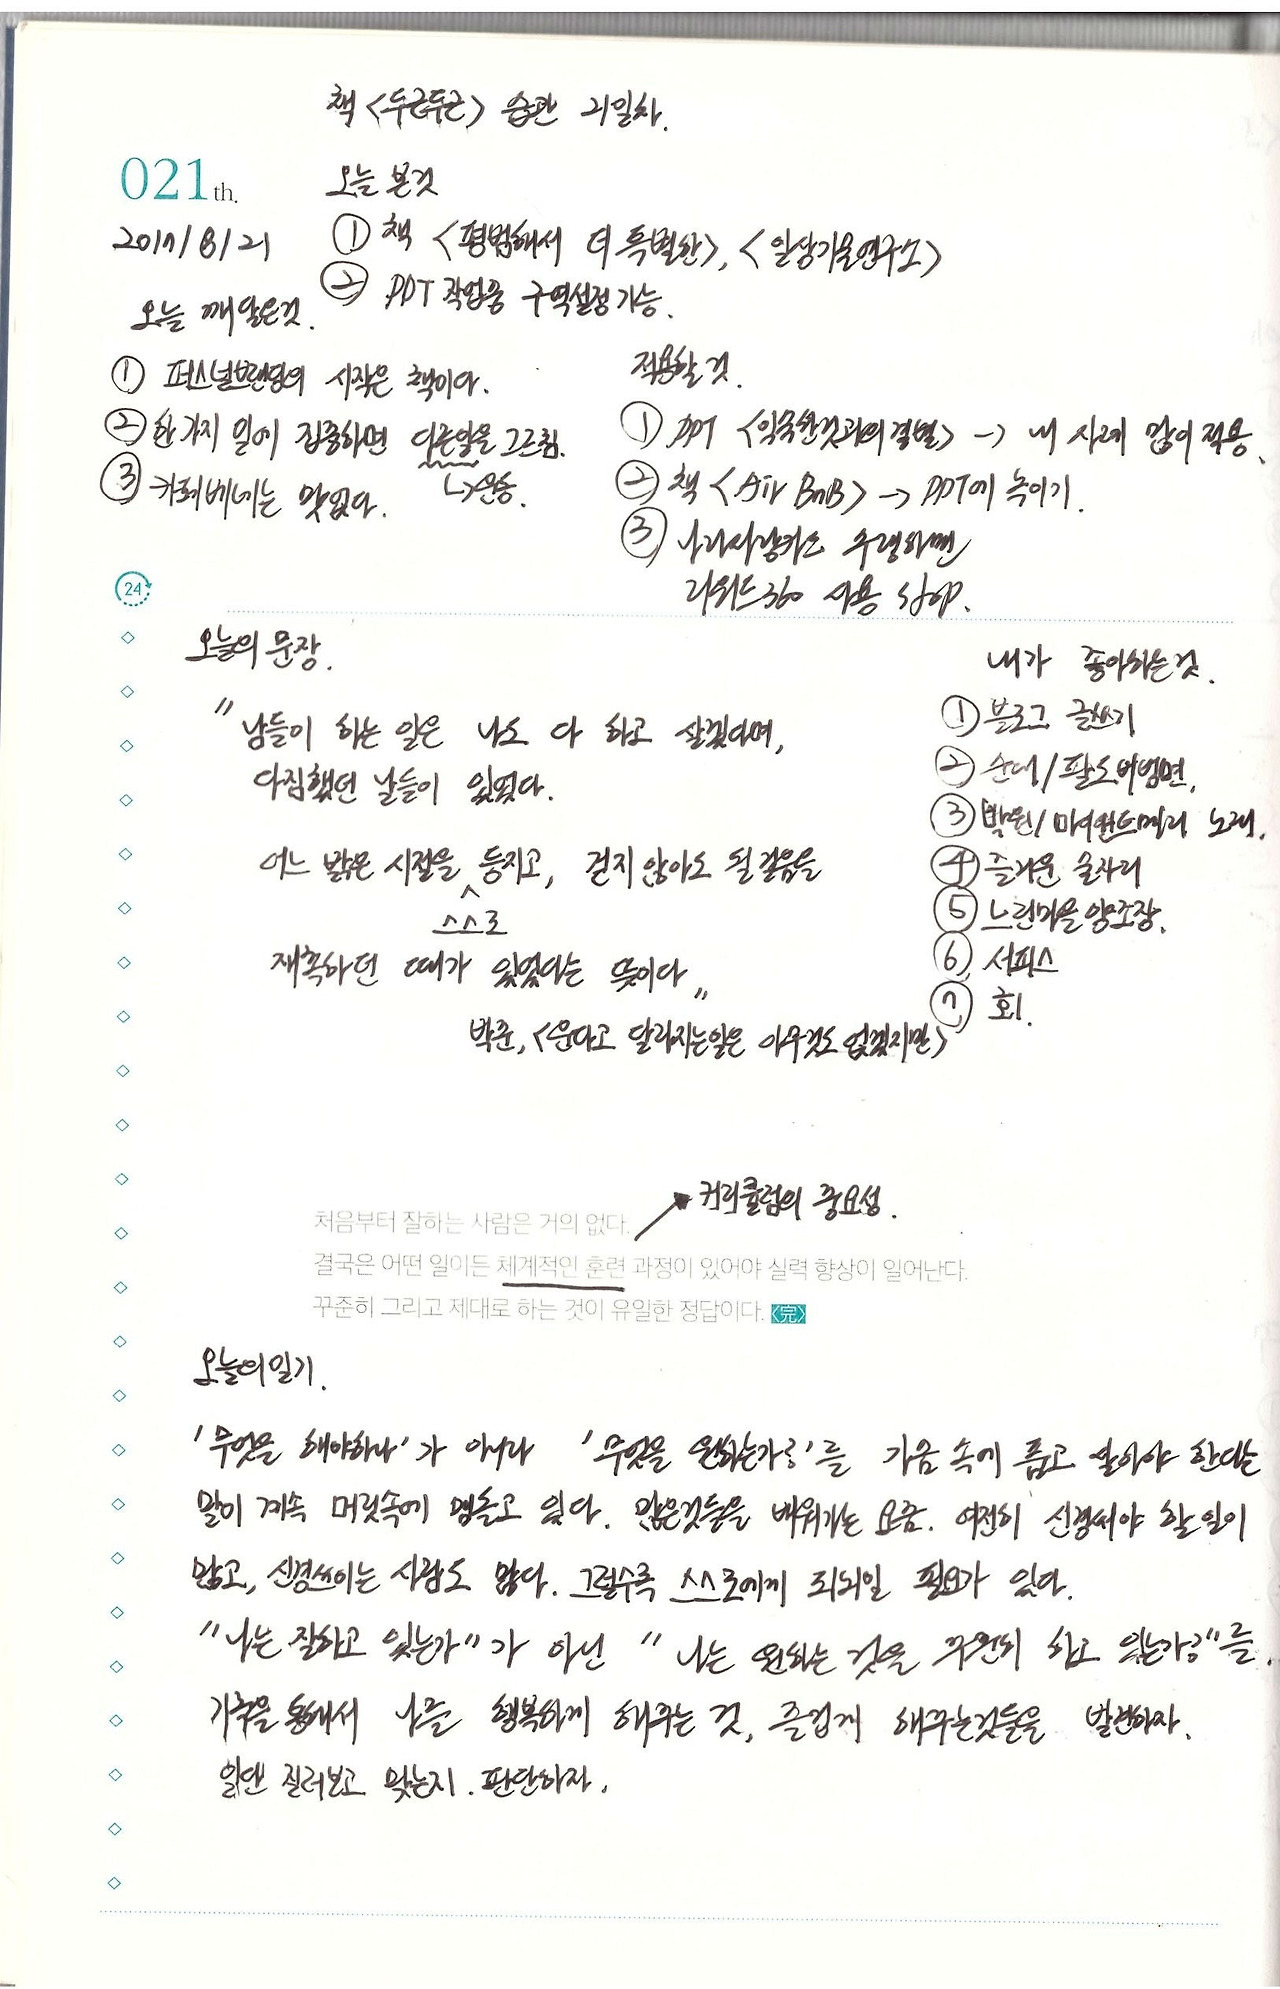 책 <두근두근> 습관 21일차.
021th.
2017/8/21
오늘 본것
① 책 <평범해서 더 특별한>, <일상기술연구소>
② PPT 작업중 구역설정 가능.
오늘 깨달은것.
① 퍼스널브랜딩의 시작은 책이다.
② 한가지 일에 집중하면 다른일을 그르침.
↳운동.
③ 카페베네는 맛없다.
적용할 것.
① PPT <익숙한것과의 결별> → 내 사례 많이 적용.
② 책 <Air BnB> → PPT에 녹이기.
③ 나라사랑카드 수령하면
리워드360 사용 stop.
24
오늘의 문장.
"남들이 하는 일은 나도 다 하고 살겠다며,
다짐했던 날들이 있었다.
어느 밝은 시절을 스스로 등지고, 걷지 않아도 될 걸음을
재촉하던 때가 있었다는 뜻이다"
박준, <운다고 달라지는일은 아무것도 없겠지만>
내가 좋아하는것.
① 블로그 글쓰기
② 순대/팔도비빔면.
③ 박원/마이앤트메리 노래.
④ 즐거운 술자리
⑤ 느린마을양조장.
⑥ 서피스
⑦ 회.
커리큘럼의 중요성.
처음부터 잘하는 사람은 거의 없다.
결국은 어떤 일이든 체계적인 훈련 과정이 있어야 실력 향상이 일어난다.
꾸준히 그리고 제대로 하는 것이 유일한 정답이다. <完>
오늘의일기.
'무엇을 해야하나'가 아니라 '무엇을 원하는가?'를 가슴 속에 품고 살아야 한다는
말이 계속 머릿속에 맴돌고 있다. 많은것들을 배워가는 요즘. 여전히 신경써야 할 일이
많고, 신경쓰이는 사람도 많다. 그럴수록 스스로에게 되뇌일 필요가 있다.
"나는 잘하고 있는가"가 아닌 "나는 원하는 것을 꾸준히 하고 있는가?"를.
기록을 통해서 나를 행복하게 해주는 것, 즐겁게 해주는것들을 발견하자.
일단 질러보고 맞는지. 판단하자.